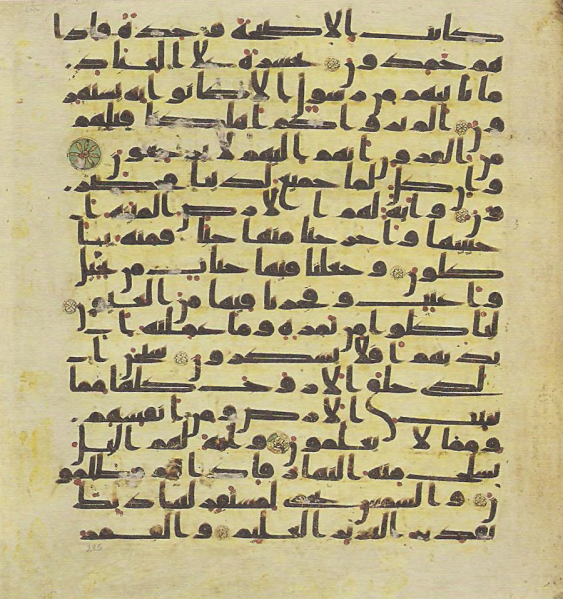 كانت الا صيحة وحدة فاذا
هم خمدون يحسرة على العباد
ما ياتيهم من رسول الا كانوا به يستهز
ون الم يروا كم اهلكنا قبلهم
من القرون انهم اليهم لا يرجعون
وان كل لما جميع لدينا محضر
ون واية لهم الارض الميتة ا
حيينها واخرجنا منها حبا فمنه يا
كلون وجعلنا فيها جنات من نخيل
واعنب وفجرنا فيها من العيون
لياكلوا من ثمره وما عملته ا
يديهم افلا يشكرون سبحن ا
لذي خلق الازوج كلها مما
تنبت الارض ومن انفسهم
ومما لا يعلمون واية لهم اليل
نسلخ منه النهار فاذا هم مظلمو
ن والشمس تجري لمستقر لها ذلك
تقدير العزيز العليم والقمر